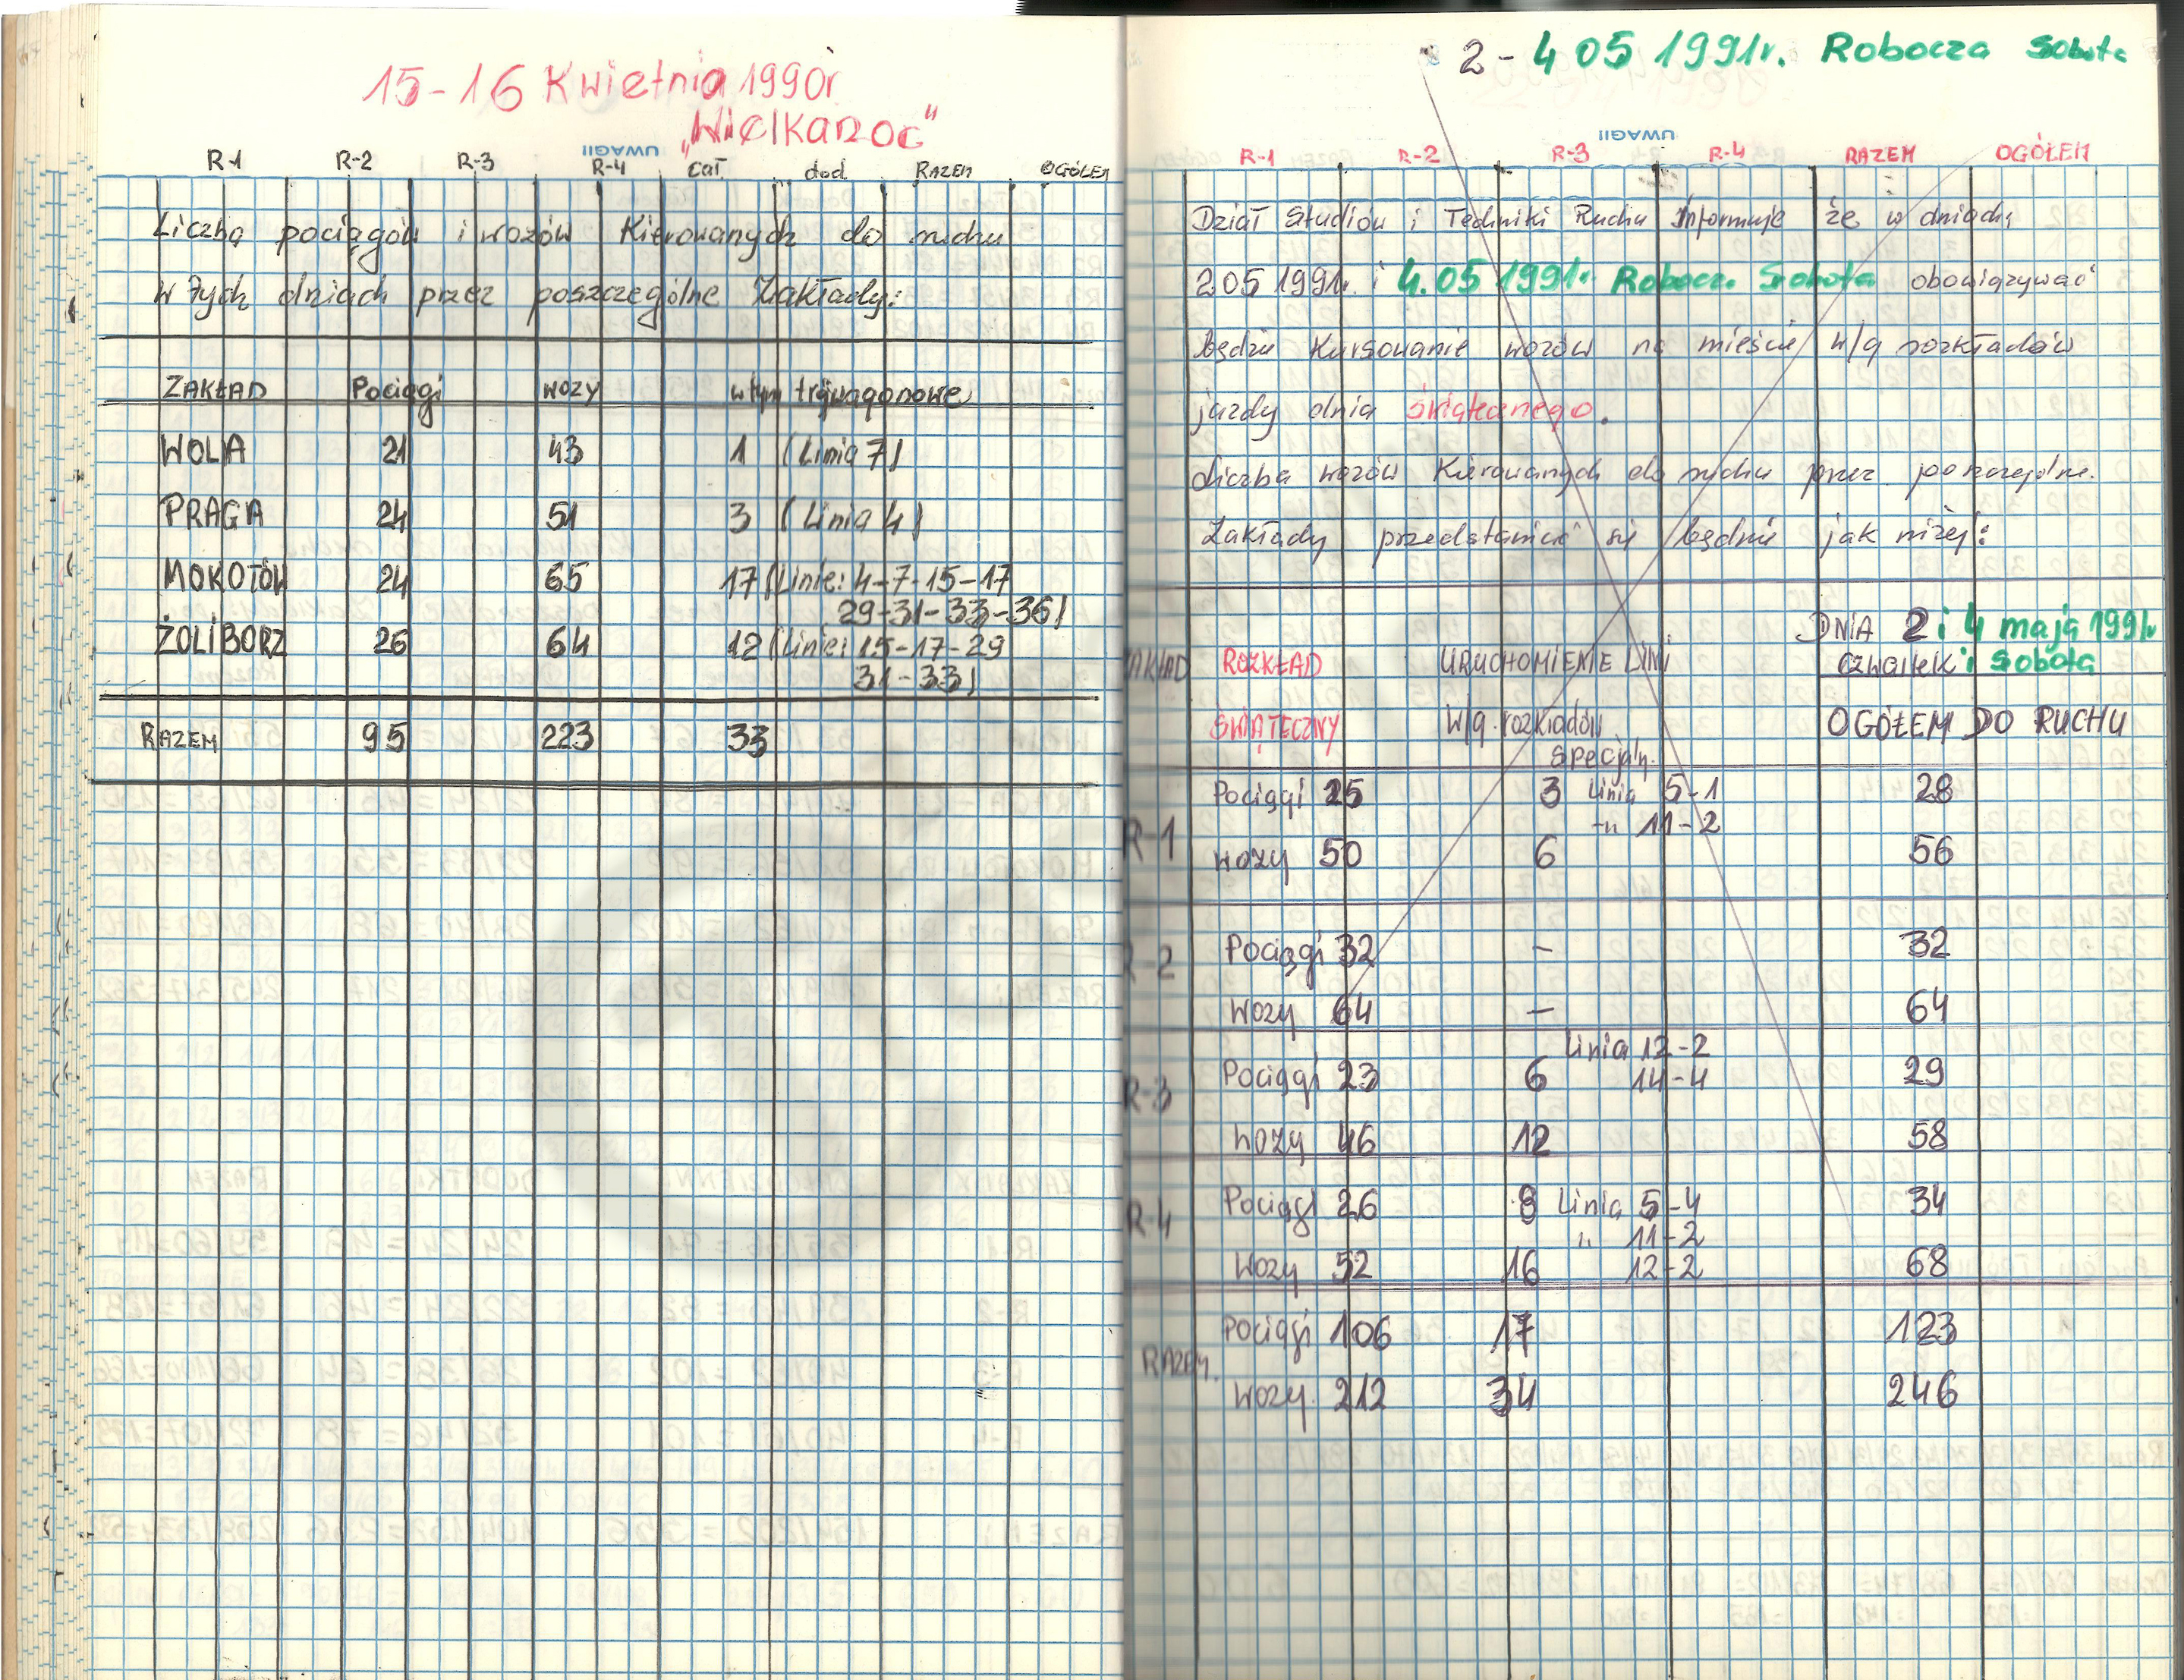 15-16 Kwietnia 1990r
„Wielkanoc"
UWAGI!
R-1 R-2 R-3 R-4 Cał. dod RAZEM OGÓŁEM
Liczba pociągów i wozów Kierowanych do ruchu
w tych dniach przez poszczególne Zakłady:
ZAKŁAD Pociągi wozy w tym trójwagonowe
WOLA 21 43 1 (Linia 7)
PRAGA 24 51 3 (Linia 4)
MOKOTÓW 24 65 17 (Linie: 4-7-15-17
29-31-33-36)
ŻOLIBORZ 26 64 12 (Linie: 15-17-29
31-33)
RAZEM 95 223 33
2-4 05 1991r. Robocza Sobota
UWAGI!
R-1 R-2 R-3 R-4 RAZEM OGÓŁEM
Dział Studiów i Techniki Ruchu Informuje że w dniach
2 05 1991r. i 4.05 1991r. Robocz. Sobota obowiązywać
będzie Kursowanie wozów na mieście w/g rozkładów
jazdy dnia świątecznego.
Liczba wozów Kierowanych do ruchu przez poszczególne.
Zakłady przedstawiać się będzie jak niżej:
DNIA 2 i 4 maja 1991r
ZAKŁAD ROZKŁAD URUCHOMIENIE LINI czwartek i Sobota
ŚWIĄTECZNY W/g. rozkładów OGÓŁEM DO RUCHU
specjaln.
Pociągi 25 3 Linia 5-1 28
-u 11-2
R-1
wozy 50 6 56
Pociągi 32 — 32
R-2
Wozy 64 — 64
Linia 12-2
Pociągi 23 6 14-4 29
R-3
Wozy 46 12 58
Pociągi 26 8 Linia 5-4 34
R-4
" 11-2
Wozy 52 16 12-2 68
Pociągi 106 17 123
RAZEM.
Wozy. 212 34 246